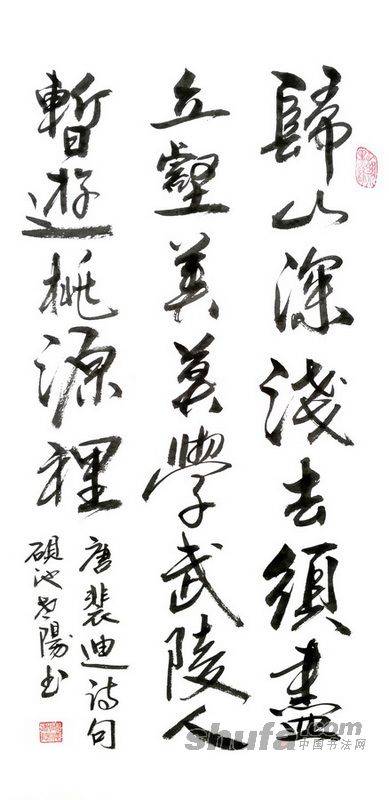 歸山深淺去須盡
丘壑美莫學武陵人
暫遊桃源裡
唐裴迪詩句
硯池陽书
shufa.com
中国书法网